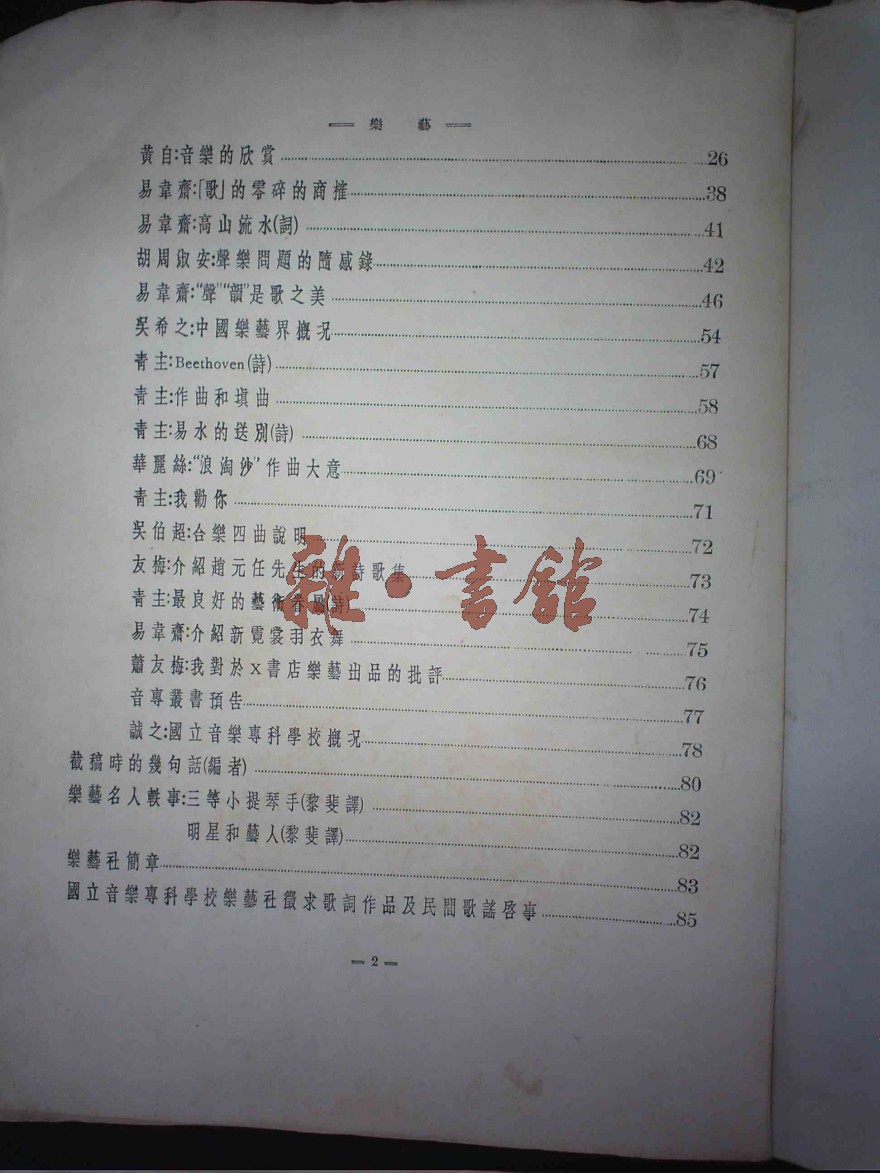 樂 藝
黃自:音樂的欣賞 26
易韋齋:「歌」的零碎的商搉 38
易韋齋:高山流水(詞) 41
胡周淑安:聲樂問題的隨感錄 42
易韋齋:“聲”“韻”是歌之美 46
吳希之:中國樂藝界概況 54
青主:Beethoven(詩) 57
青主:作曲和塡曲 58
青主:易水的送別(詩) 68
華麗絲:“浪淘沙”作曲大意 69
青主:我勸你 71
吳伯超:合樂四曲說明 72
友梅:介紹趙元任先生的新詩歌集 73
青主:最良好的藝術春恩(詩) 74
易韋齋:介紹新霓裳羽衣舞 75
蕭友梅:我對於X書店樂藝出品的批評 76
音專叢書預告 77
誠之:國立音樂專科學校概况 78
截稿時的幾句話(編者) 80
樂藝名人軼事:三等小提琴手(黎斐譯) 82
明星和藝人(黎斐譯) 82
樂藝社簡章 83
國立音樂專科學校樂藝社徵求歌詞作品及民間歌謠啓事 85
2
雜·書館